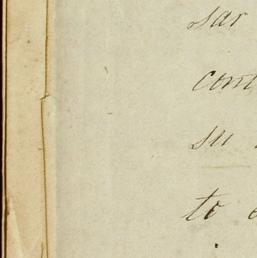 sar
com
su
to